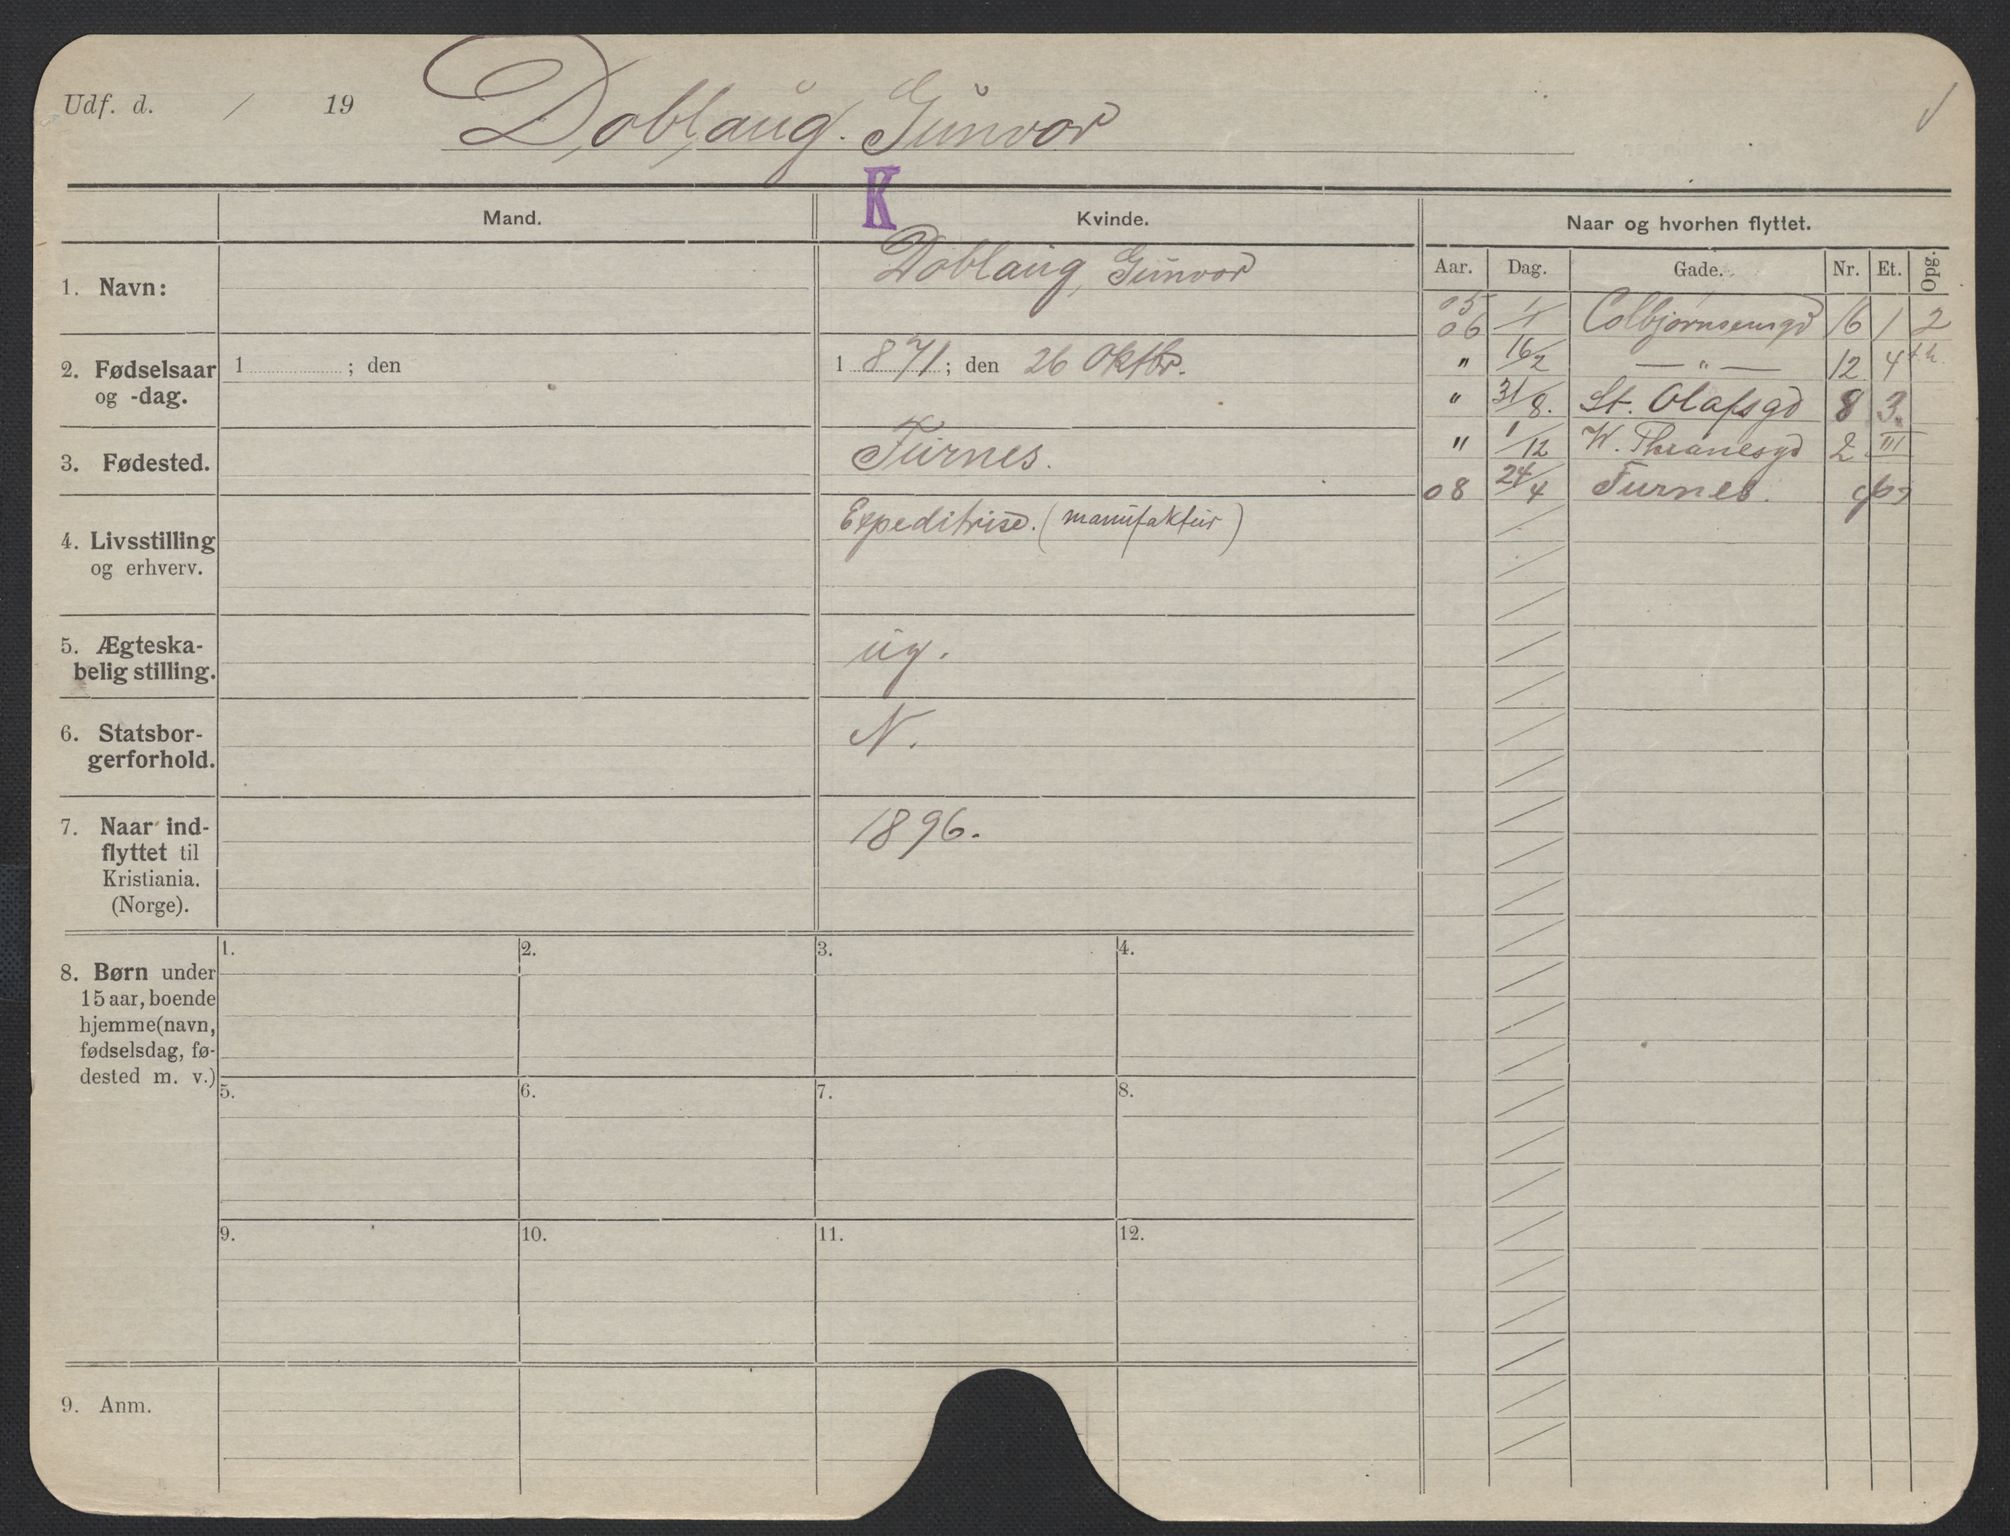 Udf. d. / 19 Doblaug. Gunvor
K
Mand. Kvinde. Naar og hvorhen flyttet.
Aar. Dag. Gade. Nr. Et. Opg.
1. Navn: Doblaug, Gunvor
05
06 1/1 Colbjørnsensgd 16 1 2
" 16/2 — " — 12 4 t.h.
" 31/8. St. Olafsgd 8 3.
" 1/12 W. Thranesgd 2 III
08 24/4 Furnes.
2. Fødselsaar og -dag. 1 ; den 1871; den 26 Oktbr.
3. Fødested. Furnes.
4. Livsstilling og erhverv. Expeditrise. (manufaktur)
5. Ægteska-
belig stilling. ug.
6. Statsbor-
gerforhold. N.
7. Naar ind-
flyttet til
Kristiania.
(Norge). 1896.
8. Børn under
15 aar, boende
hjemme (navn,
fødselsdag, fø-
dested m. v.)
1. 2. 3. 4.
5. 6. 7. 8.
9. 10. 11. 12.
9. Anm.